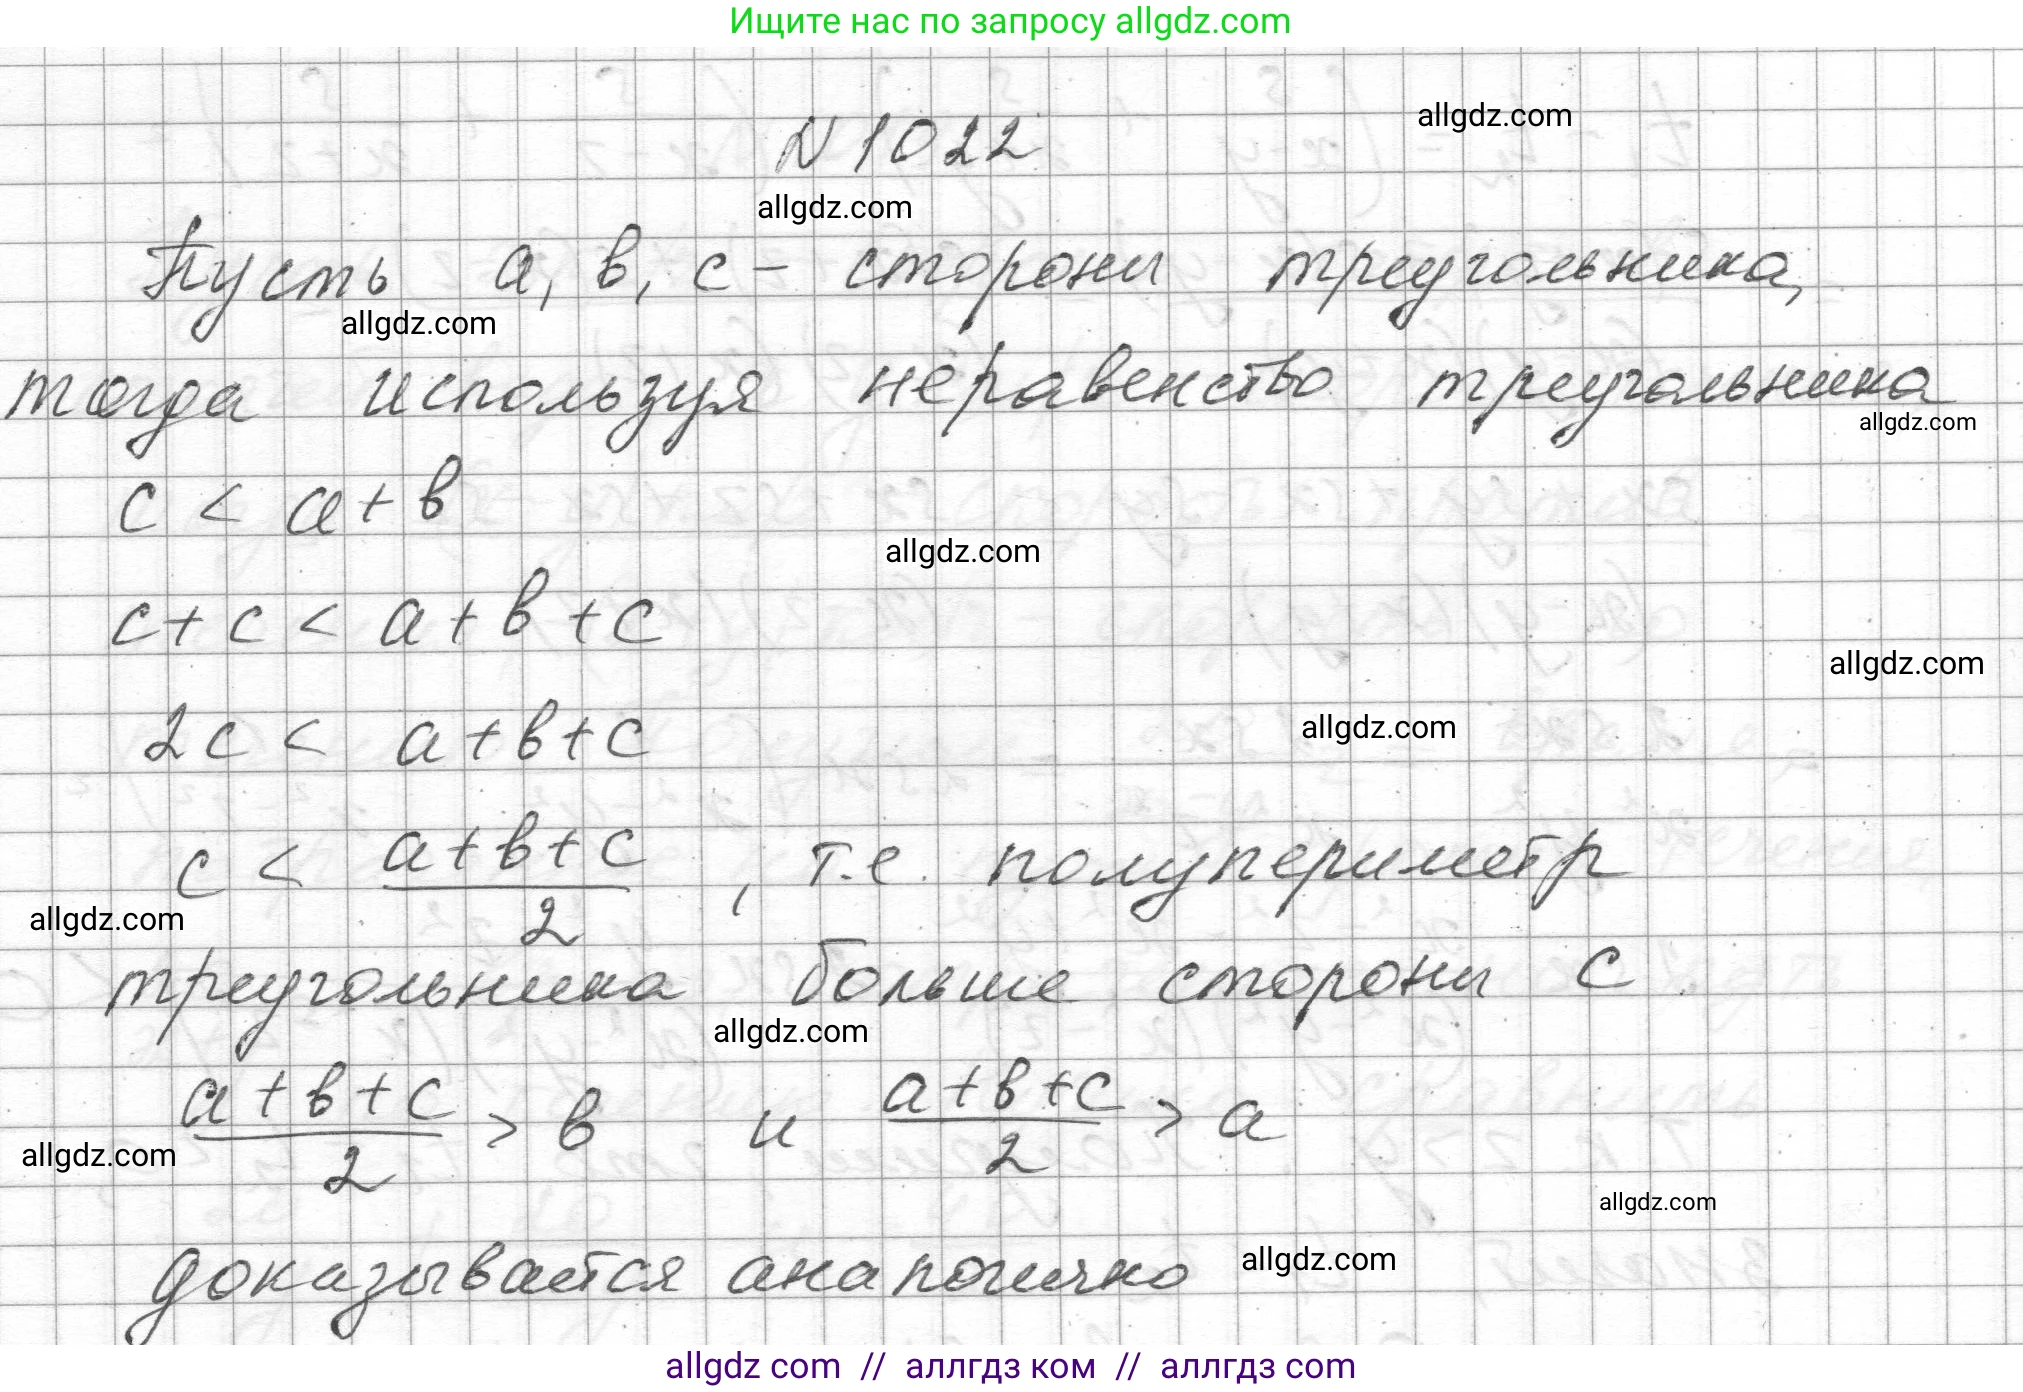 Ищите нас по запросу allgdz.com
allgdz.com
N 1022
allgdz.com
Пусть a, b, c - стороны треугольника,
allgdz.com
тогда используя неравенство треугольника
allgdz.com
c < a + b
allgdz.com
c + c < a + b + c
allgdz.com
2c < a + b + c
allgdz.com
c < (a + b + c)/2 , т.е. полупериметр
allgdz.com
треугольника больше стороны c
allgdz.com
(a + b + c)/2 > b и (a + b + c)/2 > a
allgdz.com
allgdz.com
доказывается аналогично
allgdz.com
allgdz com // аллгдз ком // аллгдз com